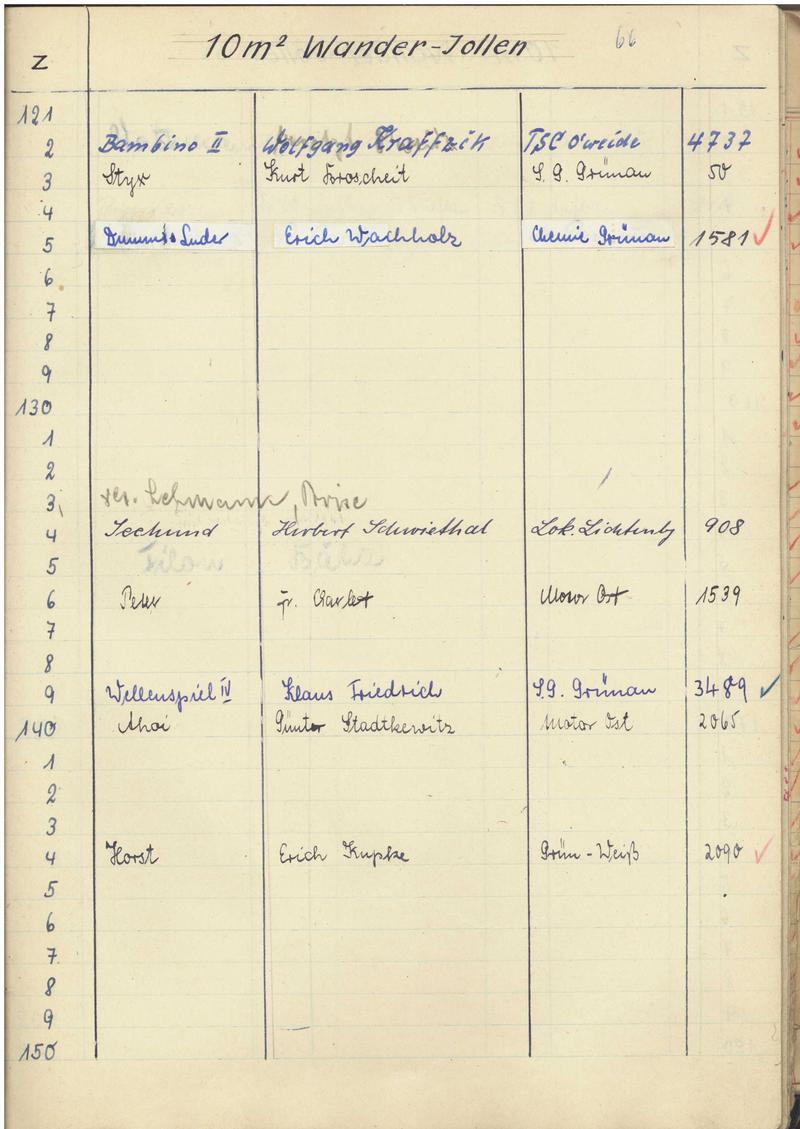 10 m² Wander-Jollen 66
Z
121
2 Bambino II Wolfgang Kraffzik TSC O'weide 4737
3 Styx Kurt Foroscheit S.G. Grünau 50
4
5 Dummes Luder Erich Wachholz Chemie Grünau 1581 ✓
6
7
8
9
130
1
2
3 res. Lehmann, Brise
4 Seehund Herbert Schwiethal Lok. Lichtenbg 908
5
6 Peter Motor Ost 1539
7
8
9 Wellenspiel IV Klaus Friedrich S.G. Grünau 3489 ✓
140 Ahoi Günter Stadtkewitz Motor Ost 2065
1
2
3
4 Horst Erich Kupke Grün-Weiß 2090 ✓
5
6
7
8
9
150